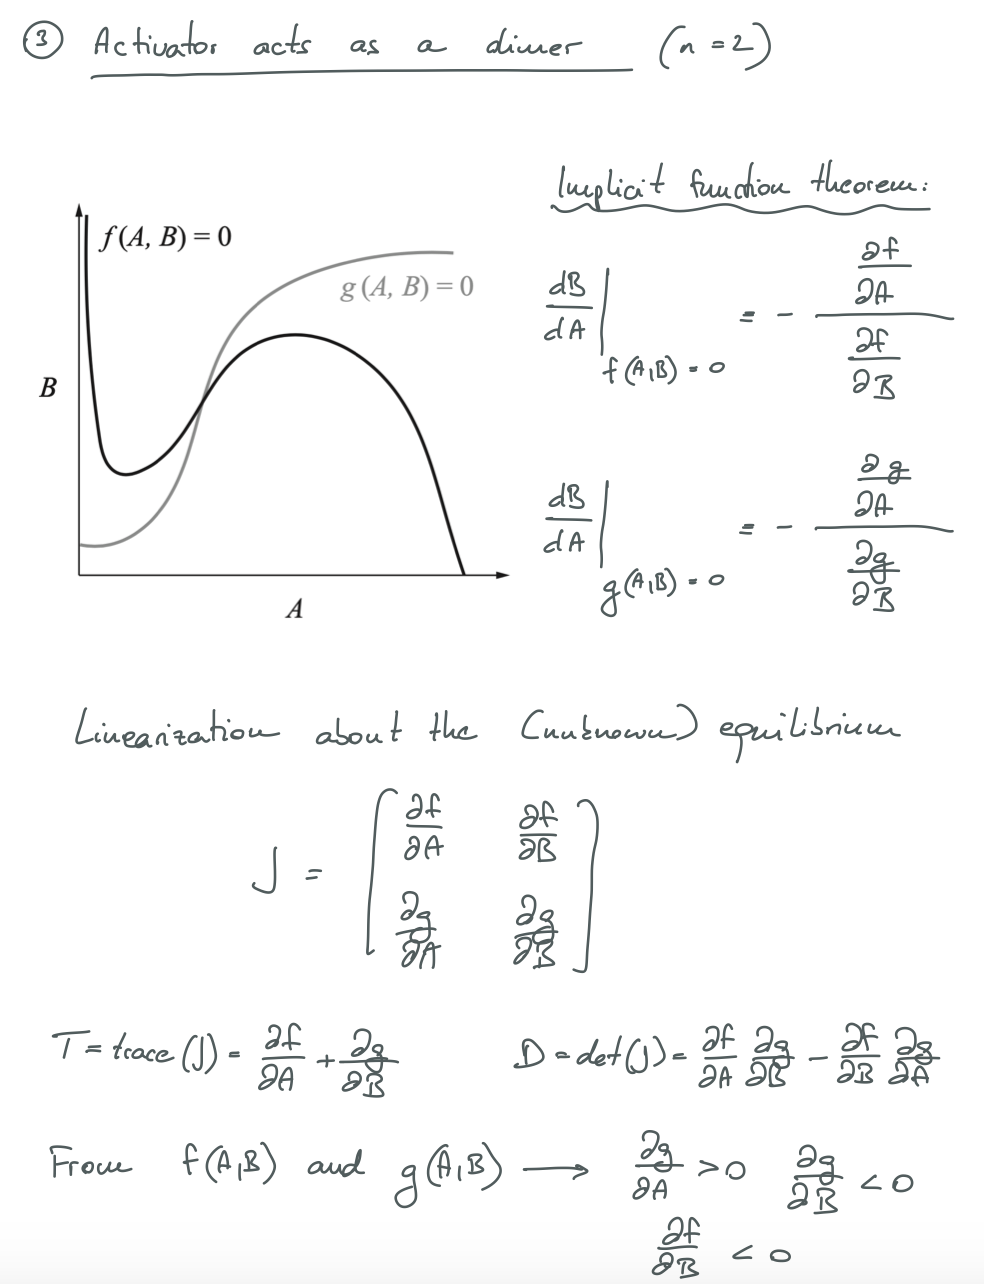 ③ Activator acts as a dimer (n = 2)
Implicit function theorem:
f(A, B) = 0
g(A, B) = 0
B
A
dB/dA | f(A,B) = 0 = - (∂f/∂A)/(∂f/∂B)
dB/dA | g(A,B) = 0 = - (∂g/∂A)/(∂g/∂B)
Linearization about the (unknown) equilibrium
J = [ ∂f/∂A ∂f/∂B
∂g/∂A ∂g/∂B ]
T = trace (J) = ∂f/∂A + ∂g/∂B D = det(J) = ∂f/∂A ∂g/∂B - ∂f/∂B ∂g/∂A
From f(A,B) and g(A,B) ⟶ ∂g/∂A > 0 ∂g/∂B < 0
∂f/∂B < 0